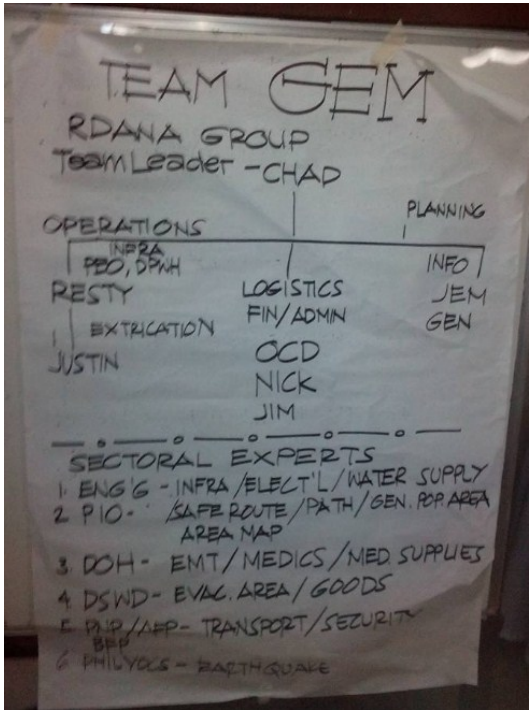 TEAM GEM
RDANA GROUP
Team Leader - CHAD
PLANNING
OPERATIONS
INFRA
PEO, DPWH
RESTY
EXTRICATION
JUSTIN
LOGISTICS
FIN/ADMIN
OCD
NICK
JIM
INFO
JEM
GEN
SECTORAL EXPERTS
1. ENG'G - INFRA / ELECT'L / WATER SUPPLY
2. PIO - /SAFE ROUTE / PATH / GEN. POP. AREA
AREA MAP
3. DOH - EMT / MEDICS / MED. SUPPLIES
4. DSWD - EVAC. AREA / GOODS
5. PNP/AFP - TRANSPORT / SECURITY
BFP
6. PHILVOLCS - EARTHQUAKE